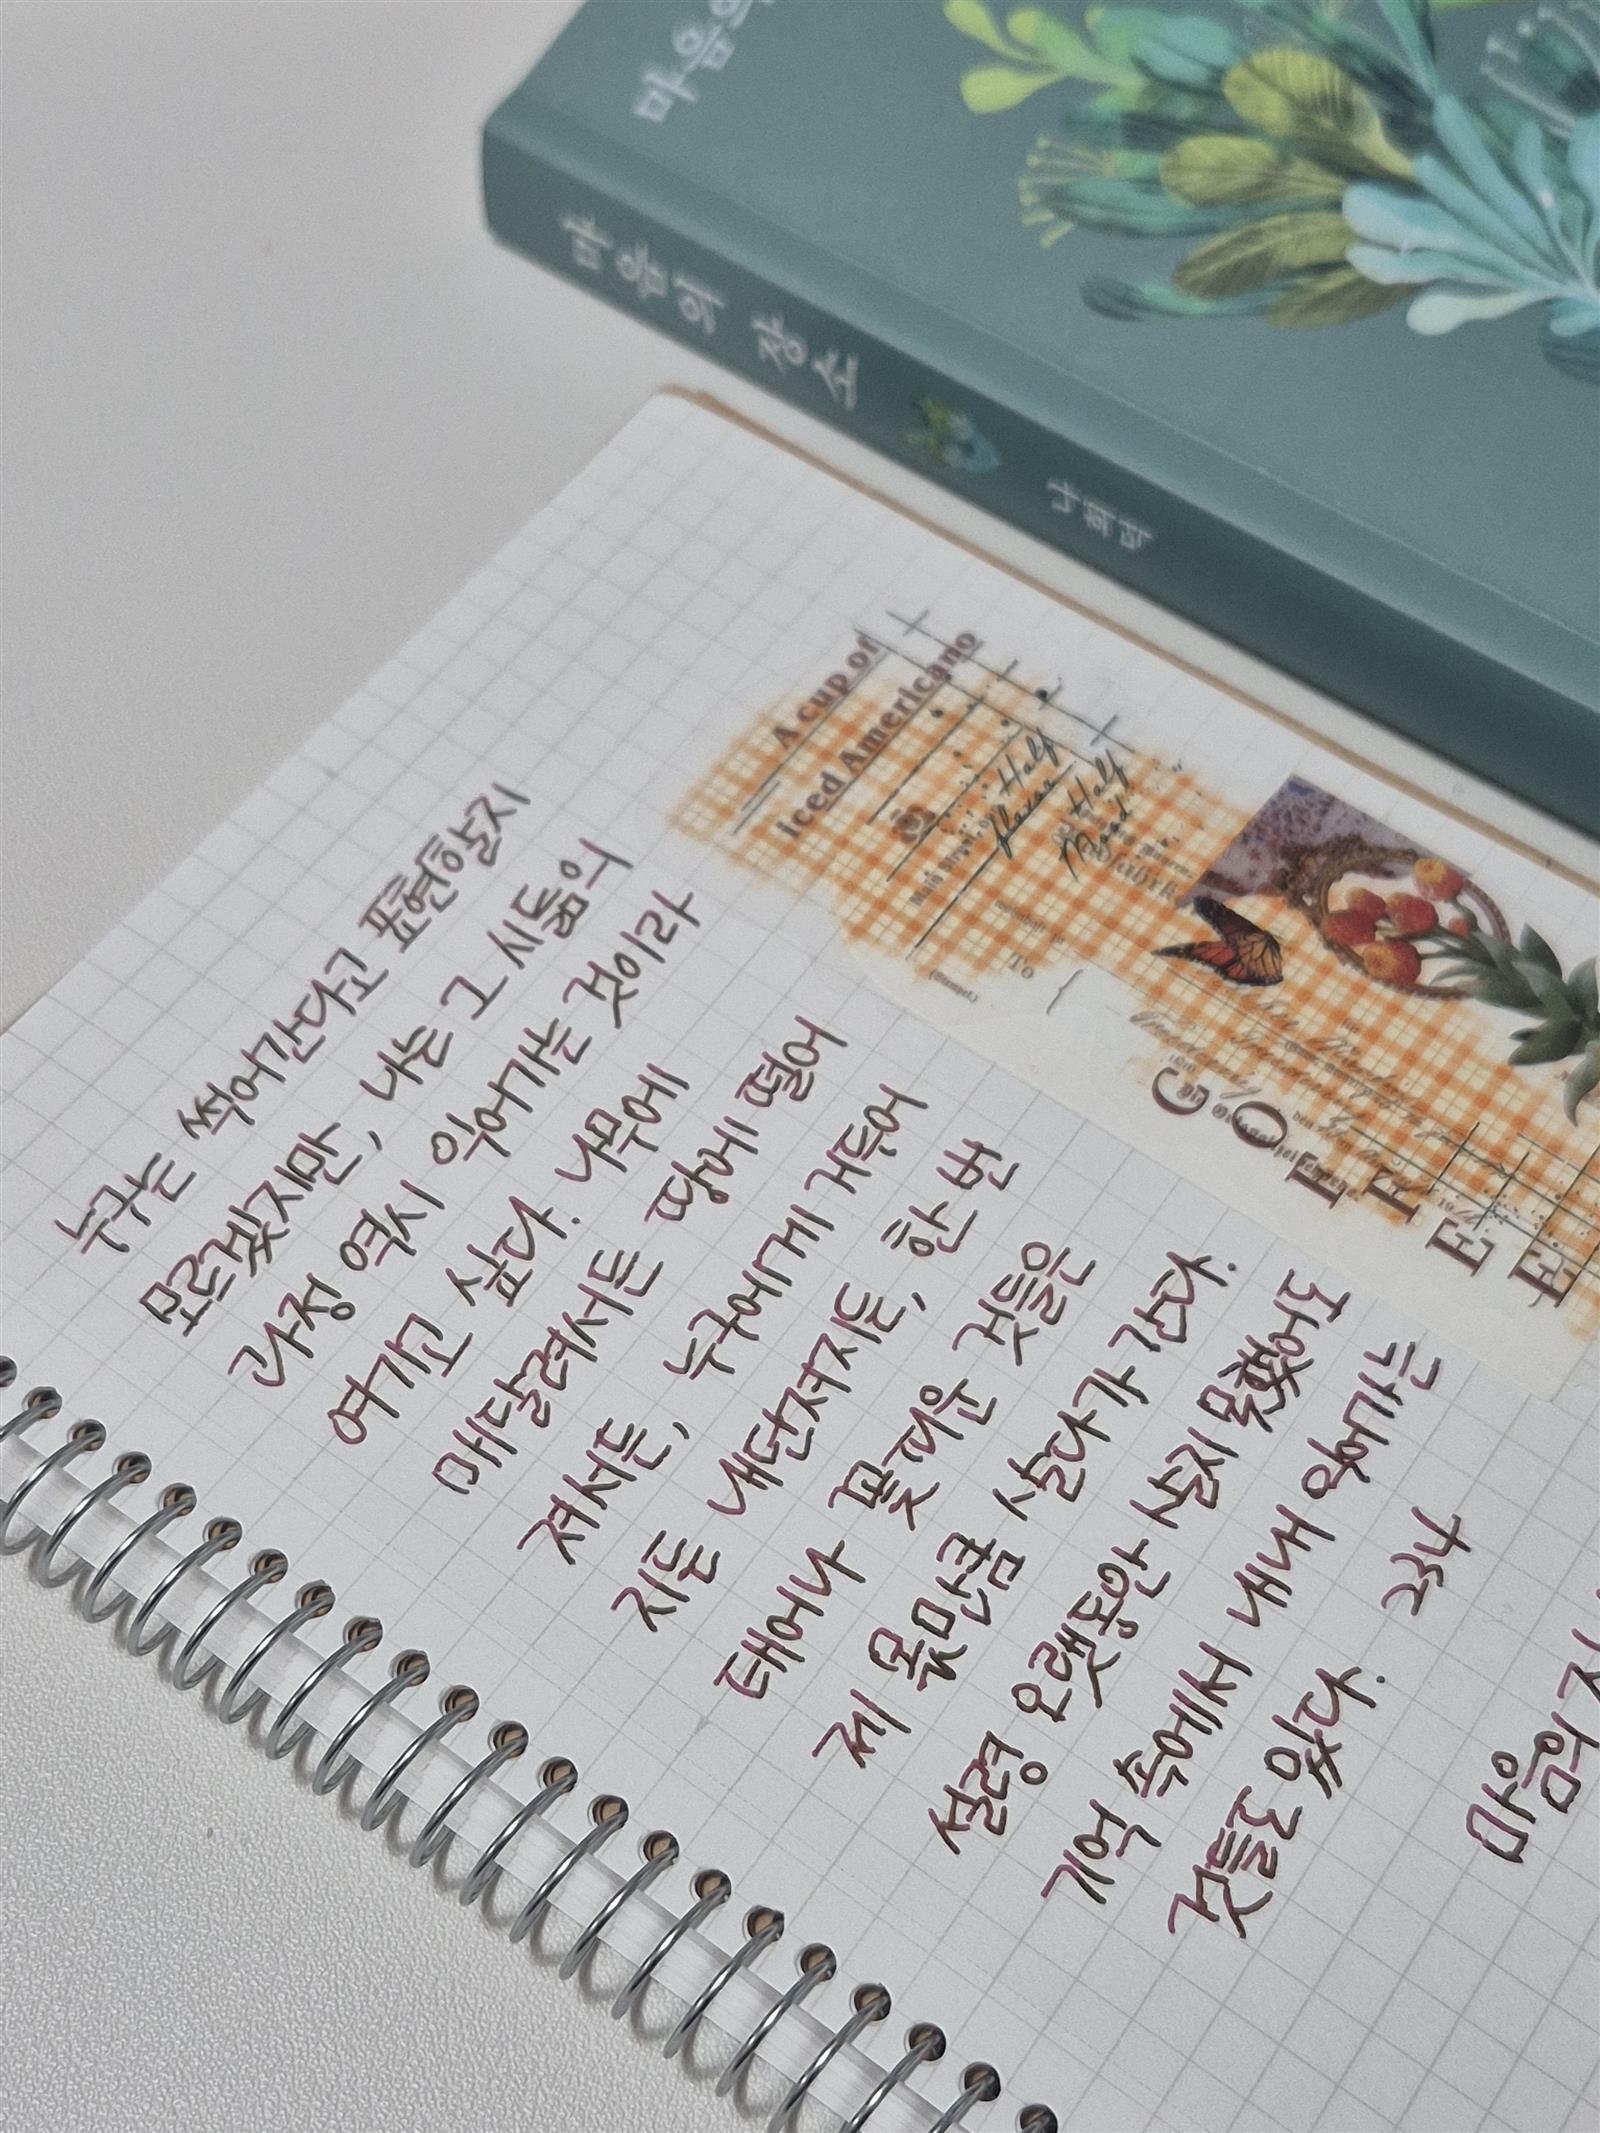 마음의
마음의 장소
나희덕
A cup of
iced Americano
Half
flavor
Half
Mood
To
COFFEE
누구는 썩어간다고 표현할지
모르겠지만, 나는 그 시듦의
과정 역시 익어가는 것이라
여기고 싶다. 나무에
매달려서든 땅에 떨어
져서든, 누구에게 거두어
지든 내던져지든, 한 번
태어나 꽃피운 것들은
제 몫만큼 살다가 간다.
설령 오랫동안 살지 못했어도
기억 속에서 내내 익어가는
것들도 있다.
234